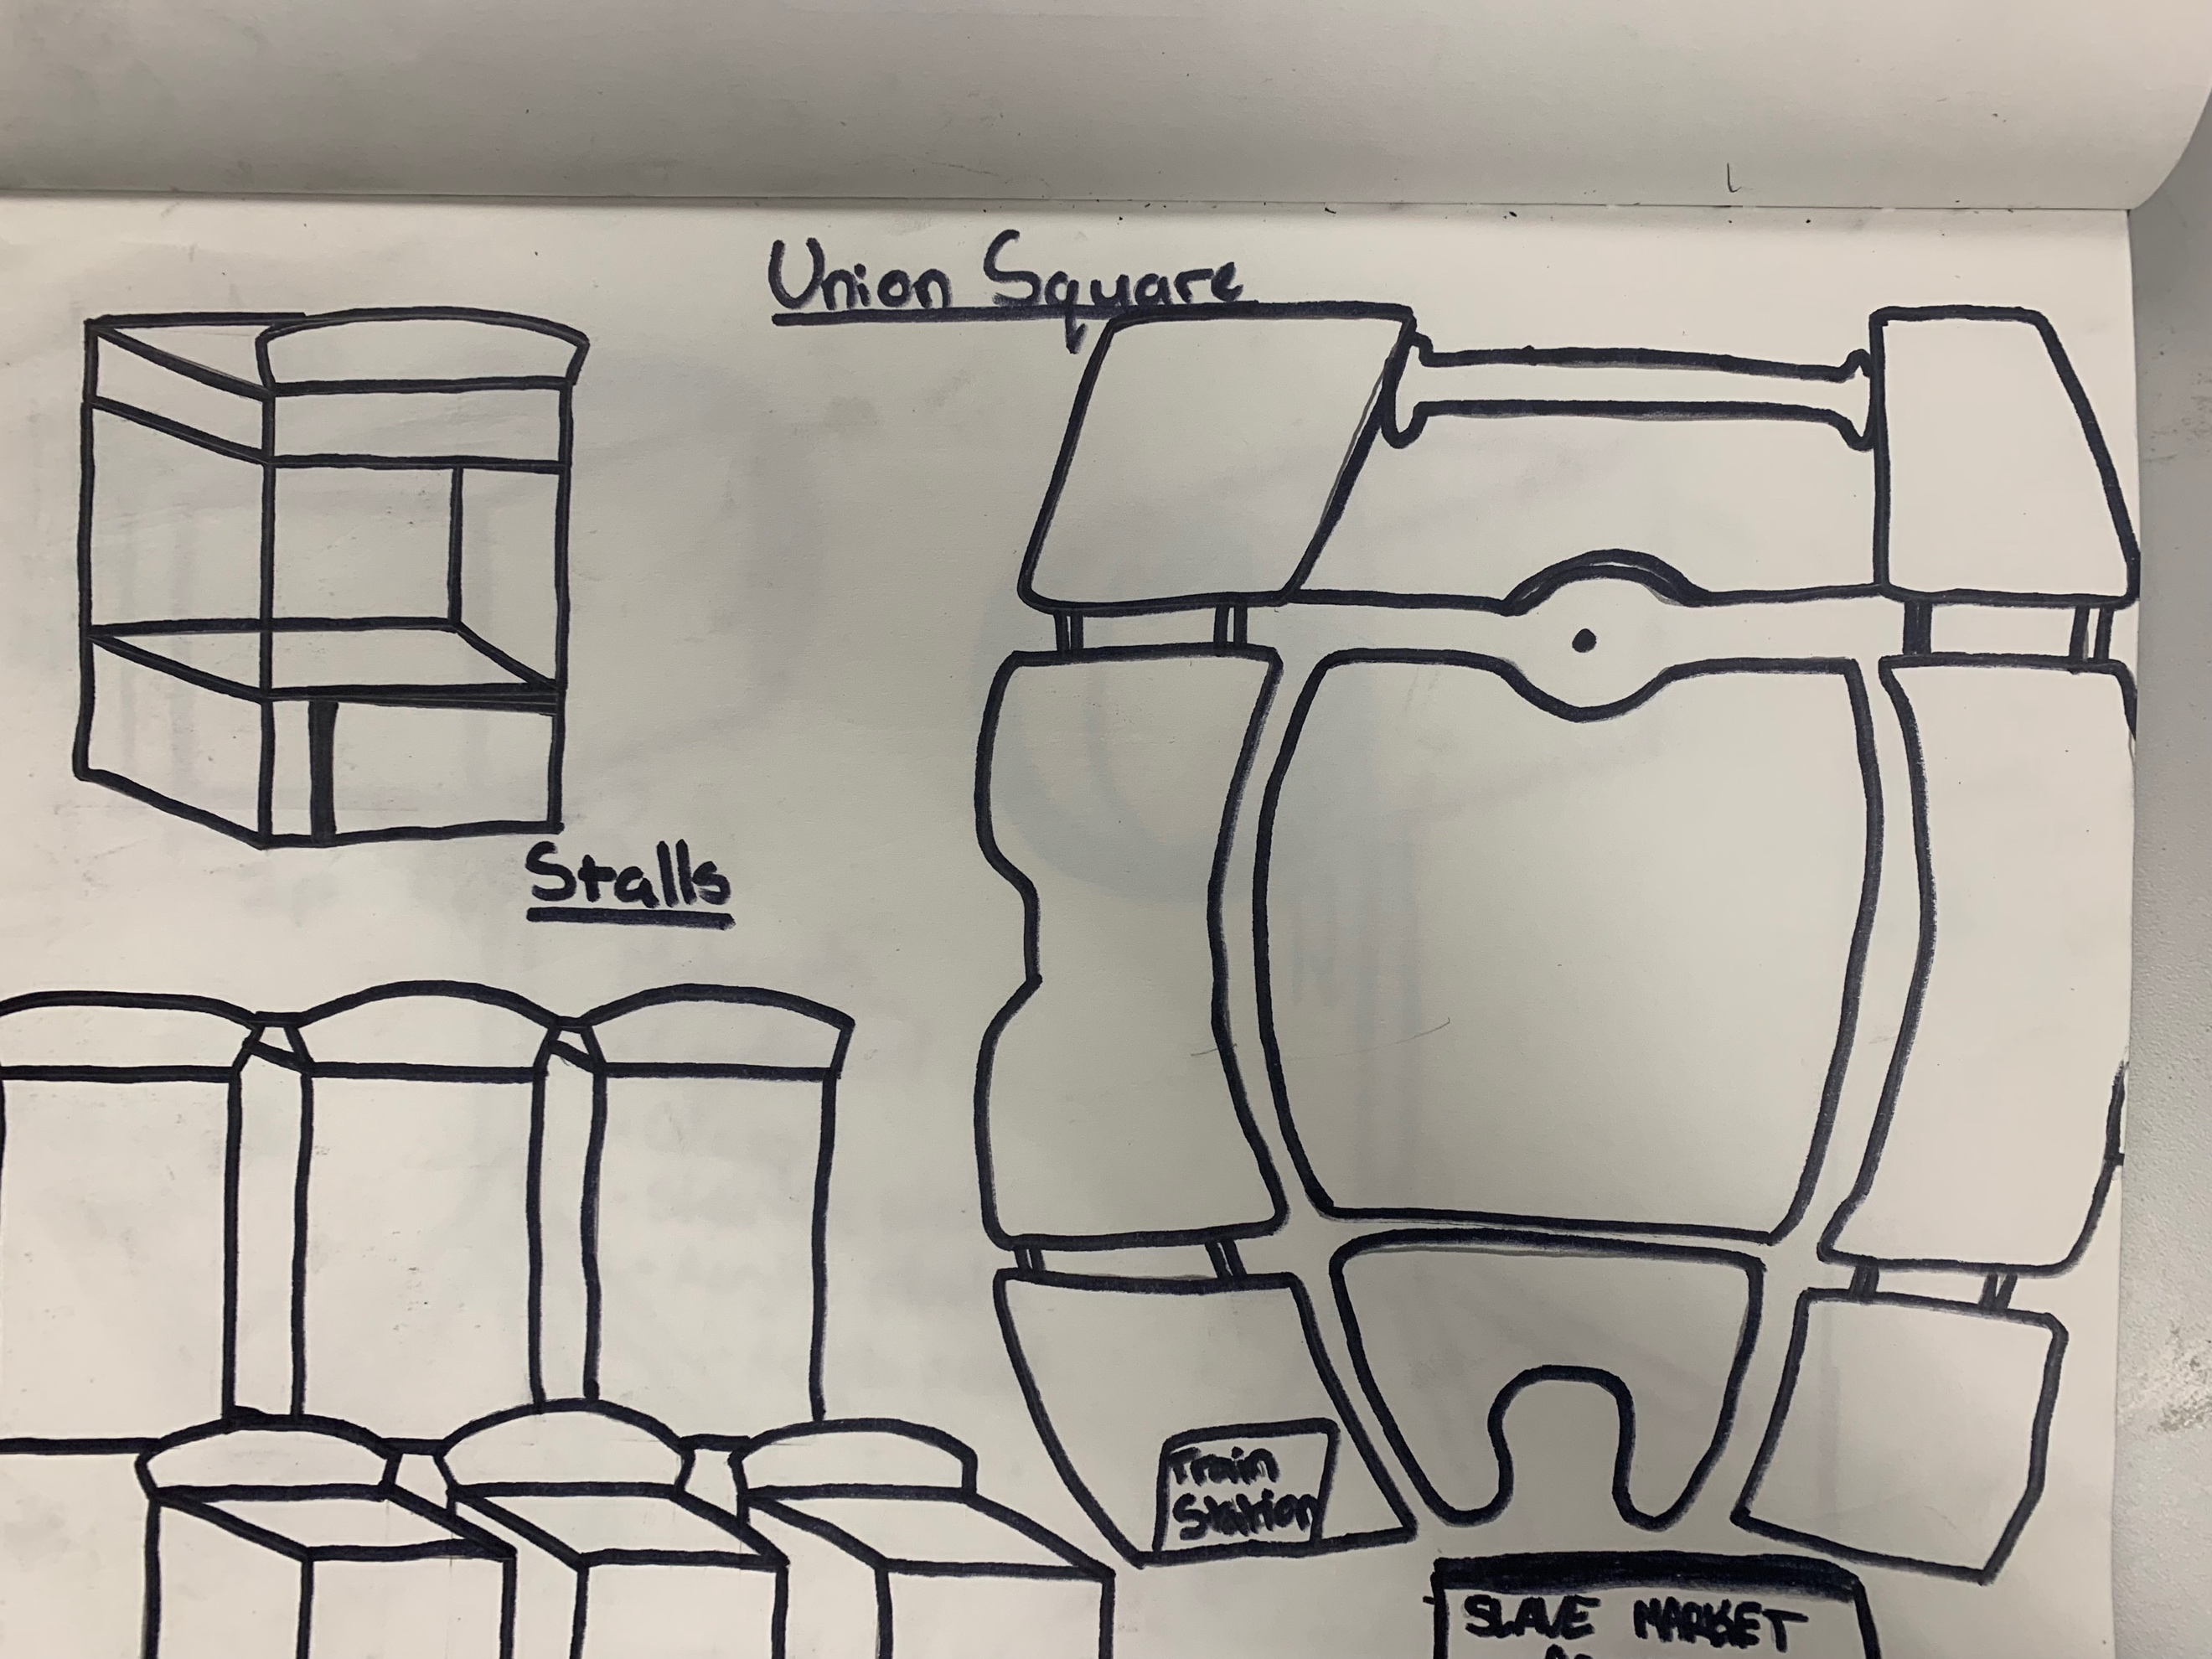 Union Square
Stalls
Train
Station
SLAVE MARKET